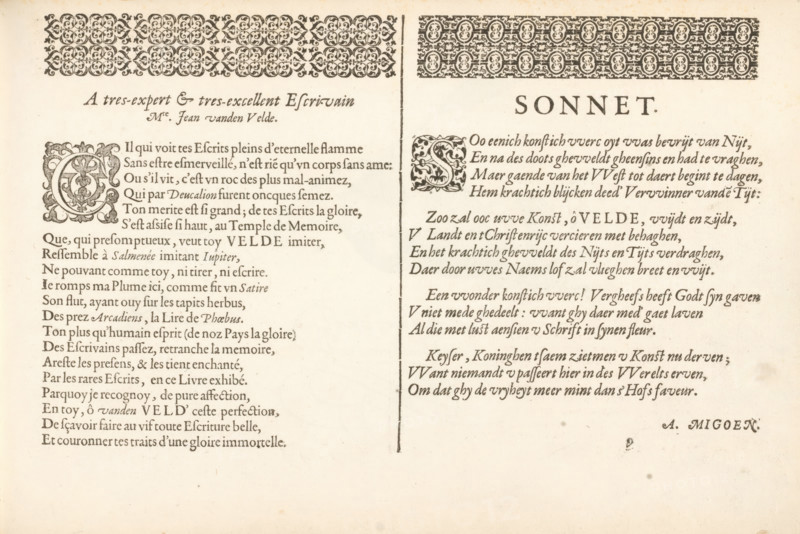 A tres-expert & tres-excellent Eſcrivain
Mre. Jean vanden Velde.
CIl qui voit tes Eſcrits pleins d'eternelle flamme
Sans eſtre eſmerveillé, n'eſt riẽ qu'vn corps ſans ame:
Ou s'il vit, c'eſt vn roc des plus mal-animez,
Qui par Deucalion furent oncques ſemez.
Ton merite eſt ſi grand; de tes Eſcrits la gloire,
S'eſt aſſiſe ſi haut, au Temple de Memoire,
Que, qui preſomptueux, veut toy VELDE imiter,
Reſſemble à Salmenée imitant Iupiter,
Ne pouvant comme toy, ni tirer, ni eſcrire.
Ie romps ma Plume ici, comme fit vn Satire
Son flut, ayant ouy ſur les tapits herbus,
Des prez Arcadiens, la Lire de Phœbus.
Ton plus qu'humain eſprit (de noz Pays la gloire)
Des Eſcrivains paſſez, retranche la memoire,
Areſte les preſens, & les tient enchanté,
Par les rares Eſcrits, en ce Livre exhibé.
Parquoy je recognoy, de pure affection,
En toy, ô vanden VELD' ceſte perfection,
De ſçavoir faire au vif toute Eſcriture belle,
Et couronner tes traits d'une gloire immortelle.
SONNET.
SOo eenich konſtich vverc oyt vvas bevrijt van Nijt,
En na des doots ghevveldt gheenſins en had te vraghen,
Maer gaende van het VVeſt tot daert begint te dagen,
Hem krachtich blijcken deed' Vervvinner vandẽ Tijt:
Zoo zal ooc uvve Konſt, ô VELDE, vvijdt en zijdt,
V Landt en tChriſtenrijc vercieren met behaghen,
En het krachtich ghevveldt des Nijts en Tijts verdraghen,
Daer door uvves Naems lof zal vlieghen breet en vvijt.
Een vvonder konſtich vverc! Vergheefs heeft Godt ſyn gaven
V niet mede ghedeelt: vvant ghy daer med' gaet laven
Al die met luſt aenſien v Schrift in ſynen fleur.
Keyſer, Koninghen tſaem zietmen v Konſt nu derven;
VVant niemandt v paſſeert hier in des VVerelts erven,
Om dat ghy de vryheyt meer mint dan s'Hofs faveur.
A. MIGOEN.